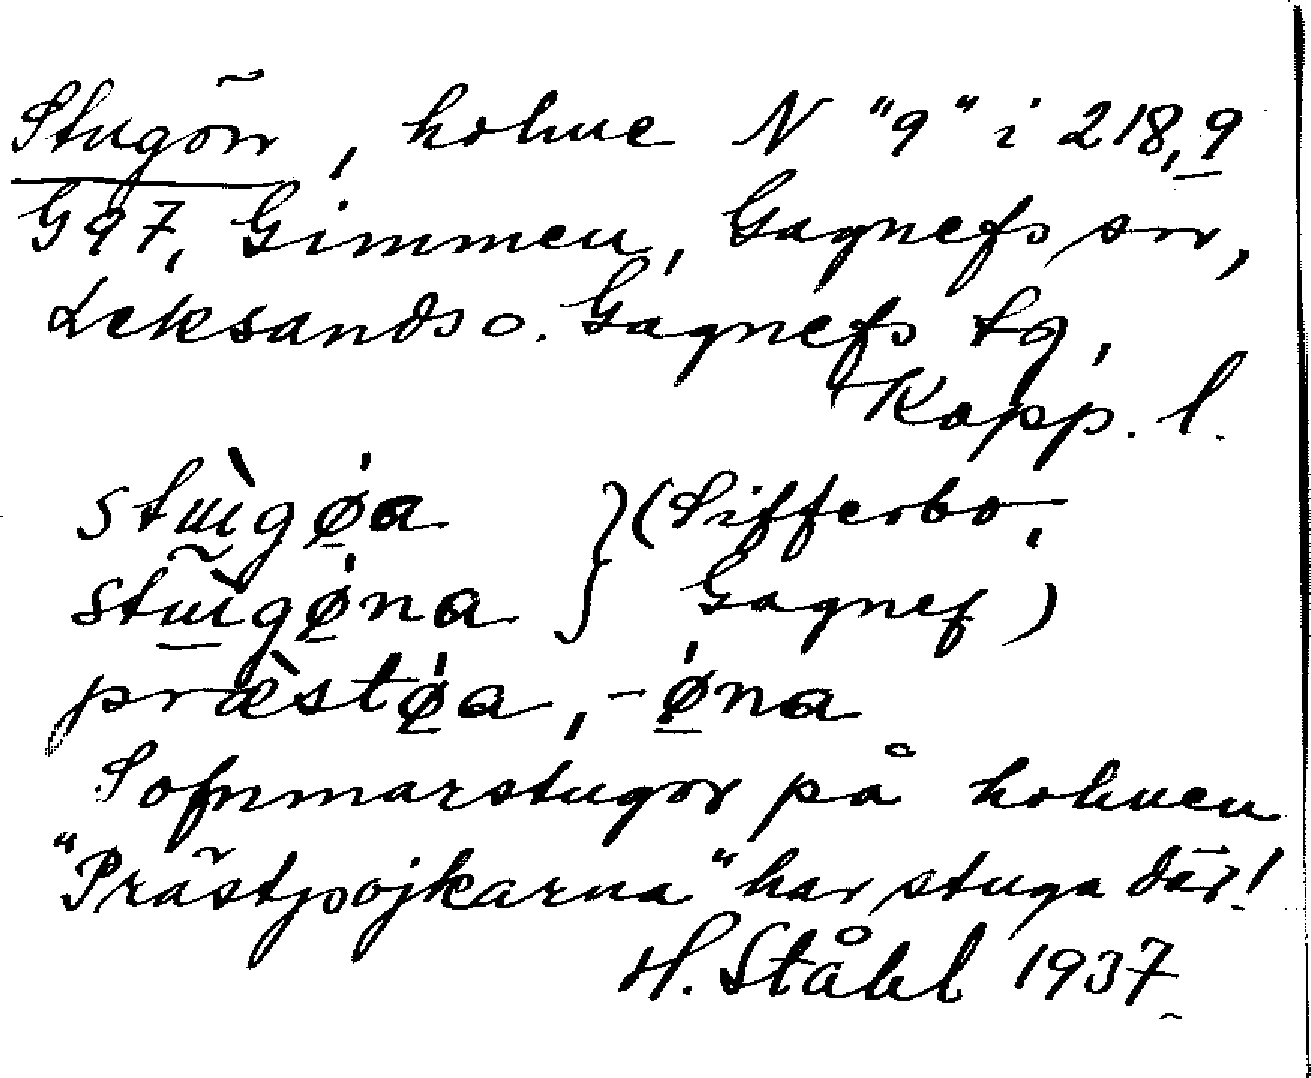 Stugön, holme N "9" i 218,9
G 97, Gimmen, Gagnefs sn,
Leksands o. Gagnefs tg,
Kopp. l.
stùgø̀a } (Sifferbo,
stùgø̀na } Gagnef)
præ̀stø̀a, -ø̀na
Sommarstugor på holmen
"Prästpojkarna" har stuga där!
H. Ståhl 1937